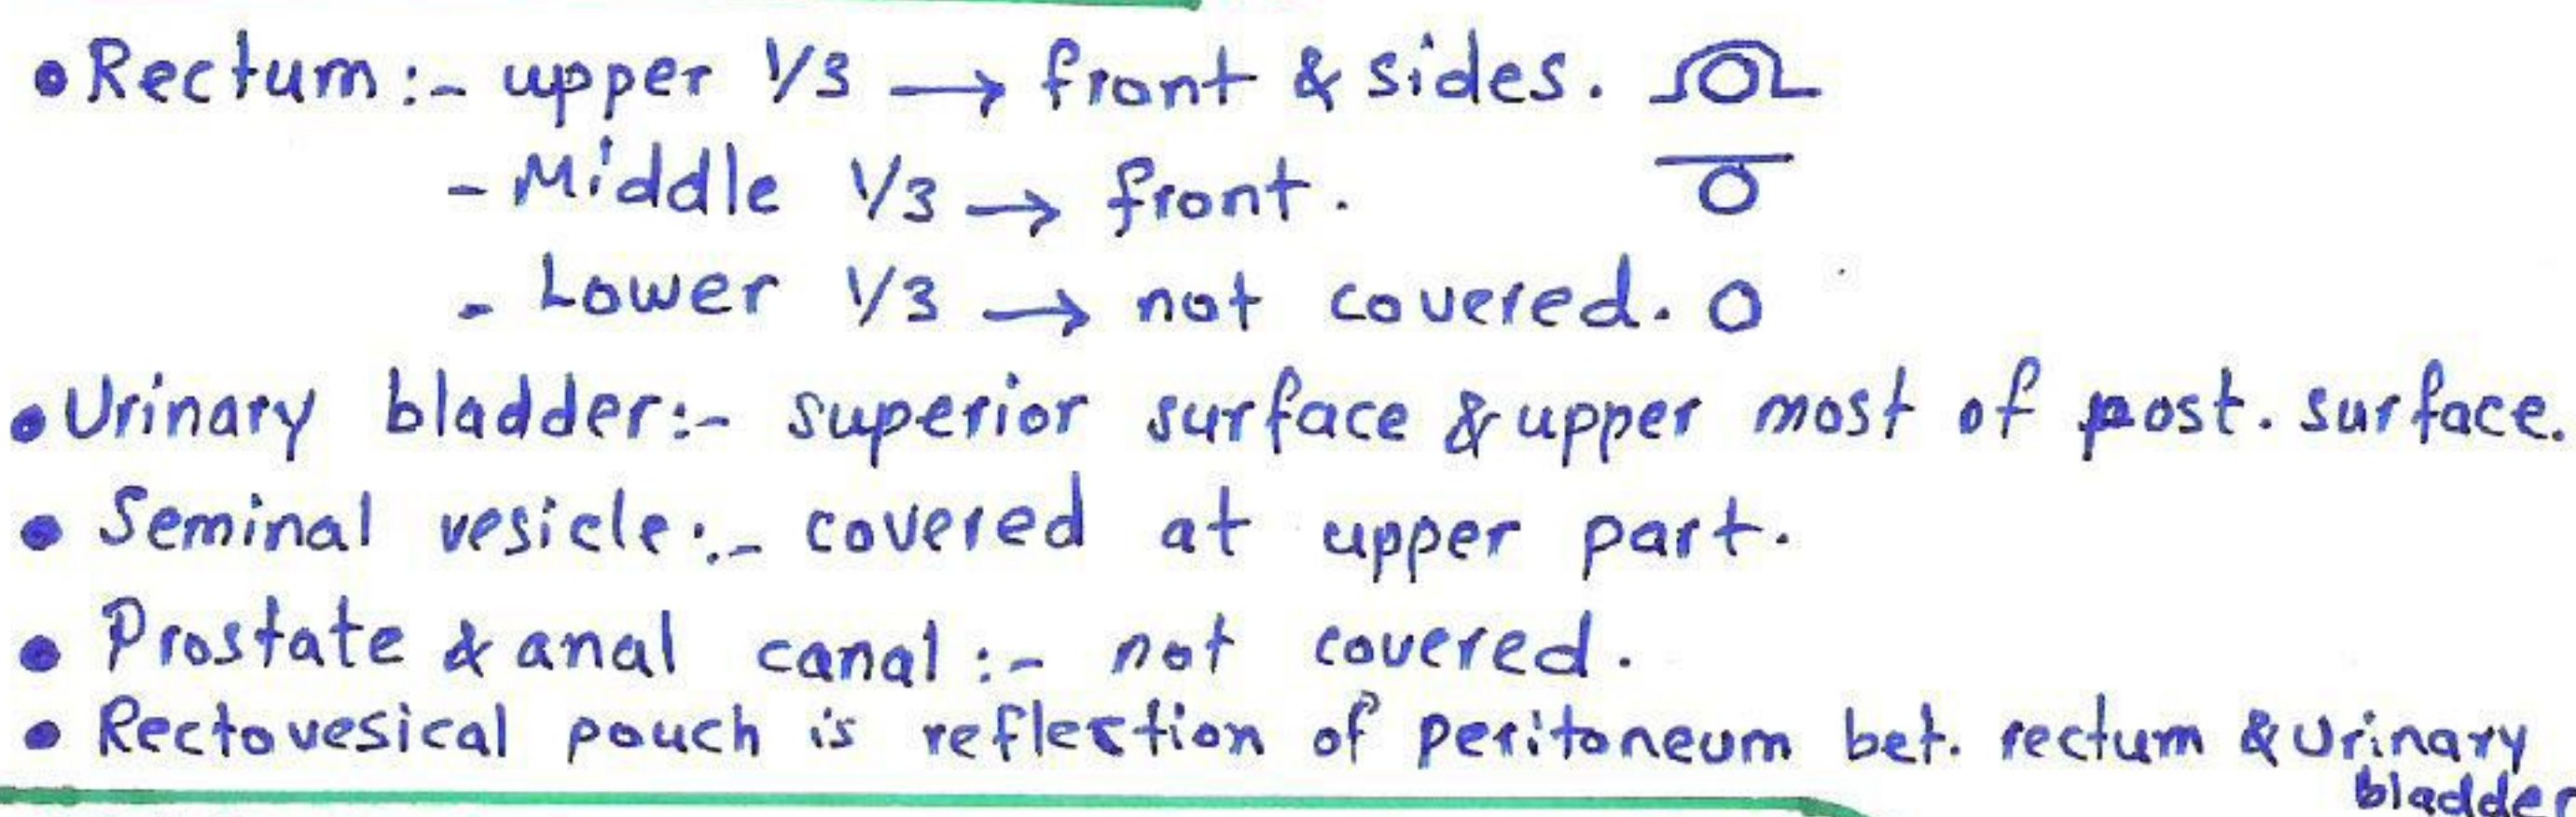 • Rectum :- upper 1/3 → front & sides.
- Middle 1/3 → front.
- Lower 1/3 → not covered.
• Urinary bladder :- superior surface & upper most of post. surface.
• Seminal vesicle :- covered at upper part.
• Prostate & anal canal :- not covered.
• Rectovesical pouch is reflection of peritoneum bet. rectum & urinary
bladder